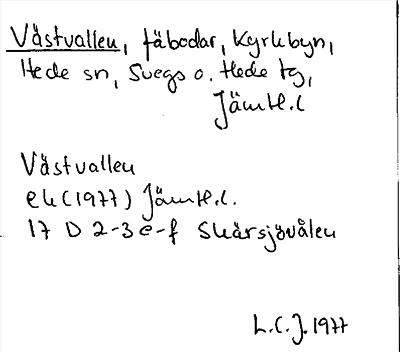 Västvallen, fäbodar, Kyrkbyn,
Hede sn, Svegs o. Hede tg,
Jämtl.l
Västvallen
ek (1977) Jämtl.l.
17 D 2-3 e-f Skärsjövålen
L.C.J. 1977